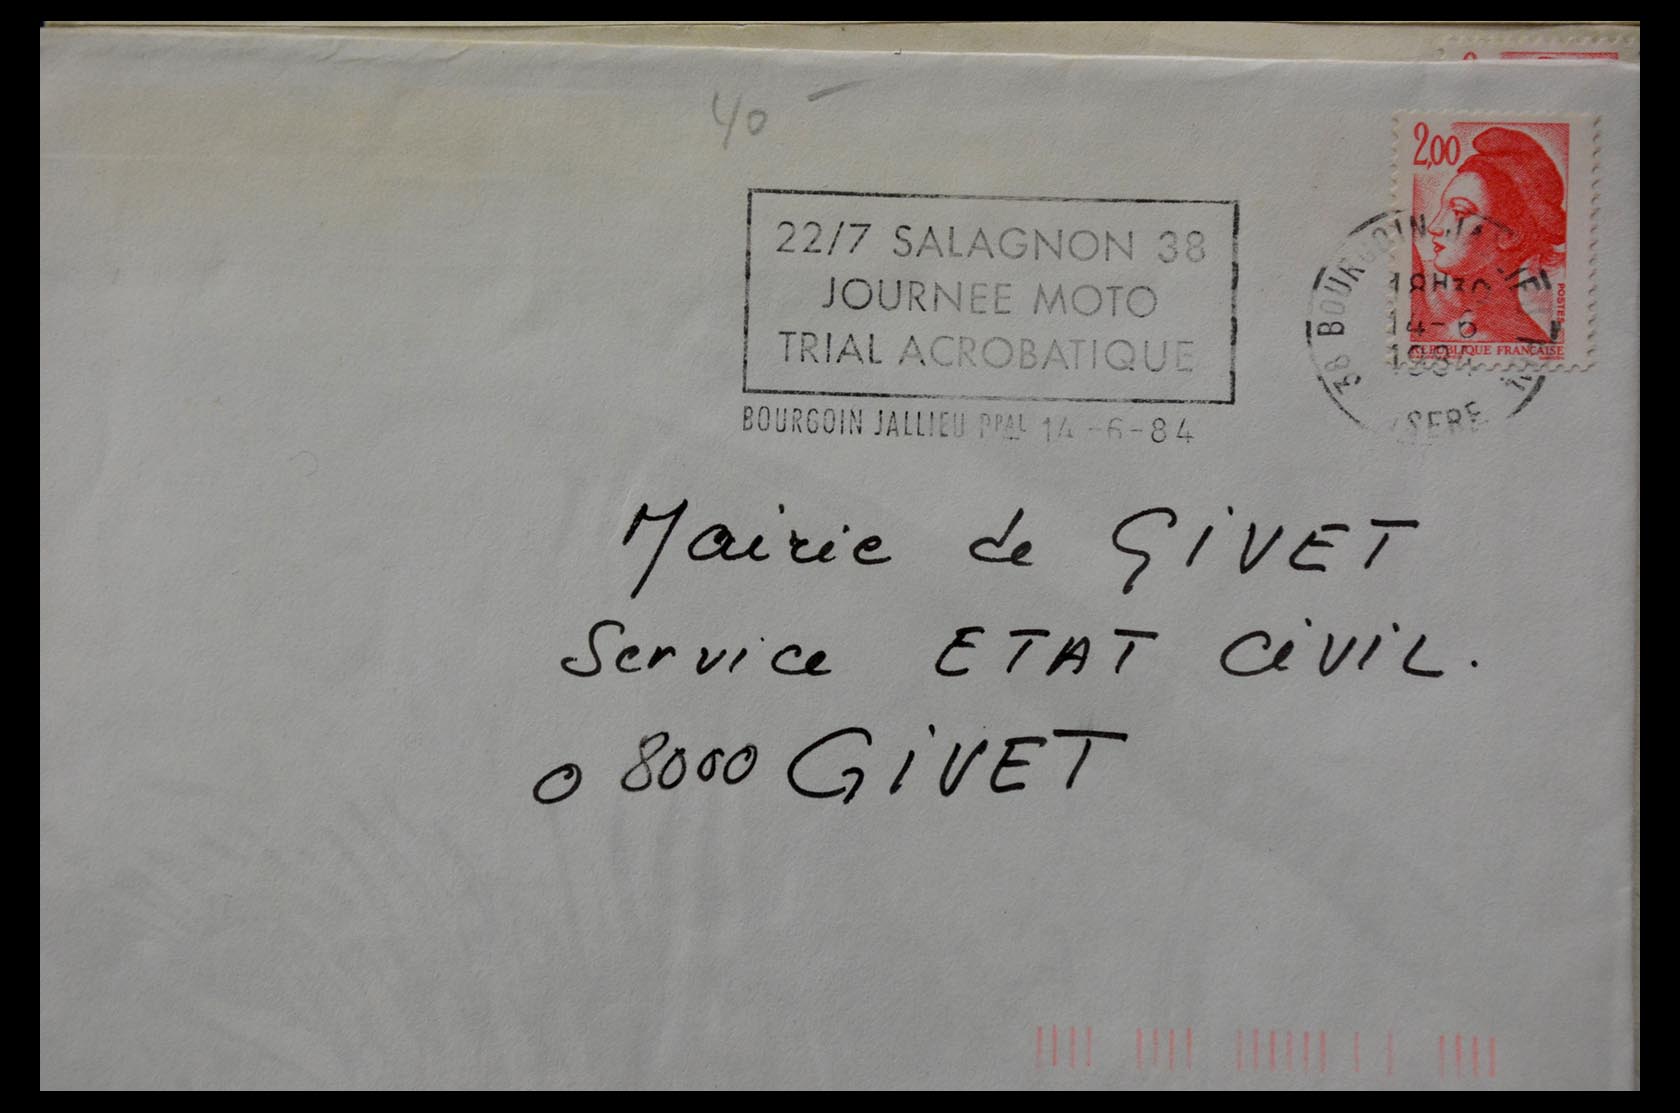 40 -
2,00
22/7 SALAGNON 38
JOURNEE MOTO
TRIAL ACROBATIQUE
BOURGOIN JALLIEU PPAL 14-6-84
POSTES
REPUBLIQUE FRANÇAISE
38 BOURGOIN JALLIEU
18H30
14-6
1984
ISERE
Mairie de GIVET
Service ETAT CIVIL.
08000 GIVET